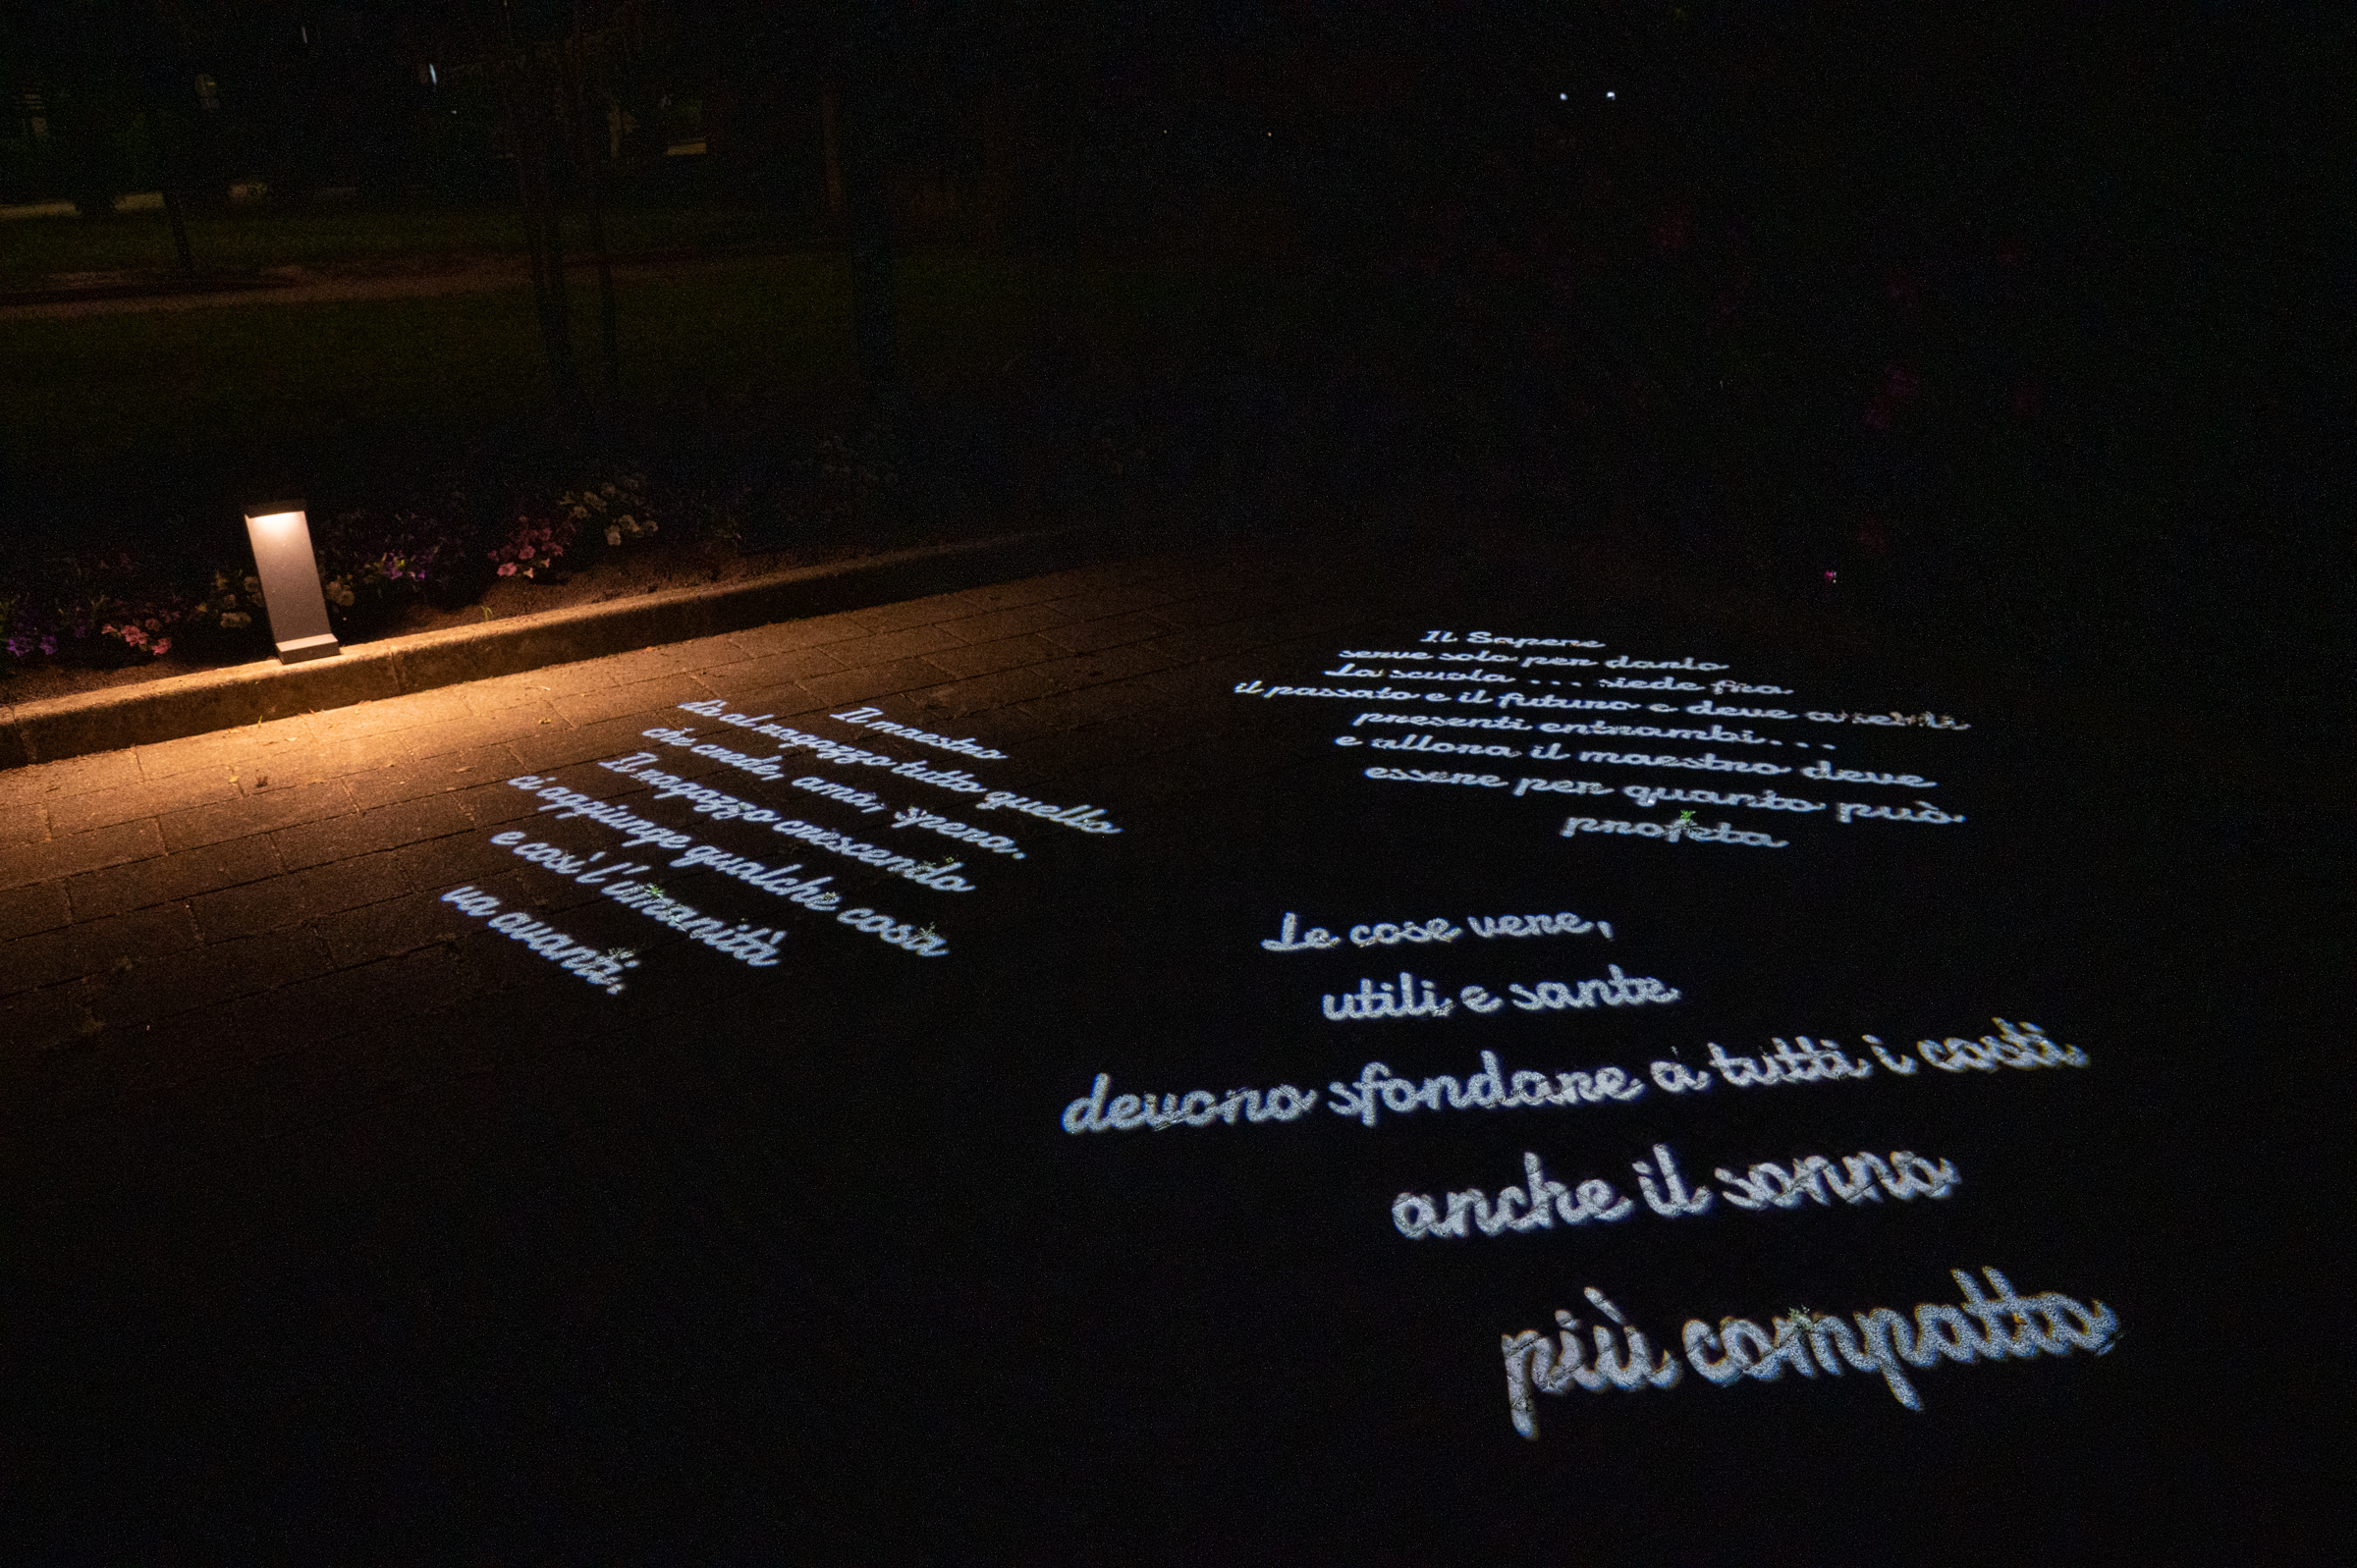 Il maestro
dà al ragazzo tutto quello
che crede, ama, spera.
Il ragazzo crescendo
ci aggiunge qualche cosa
e così l'umanità
va avanti.
Il Sapere
serve solo per darlo
La scuola ... siede fra
il passato e il futuro e deve averli
presenti entrambi...
e allora il maestro deve
essere per quanto può
profeta
Le cose vere,
utili e sante
devono sfondare a tutti i costi
anche il sonno
più compatto